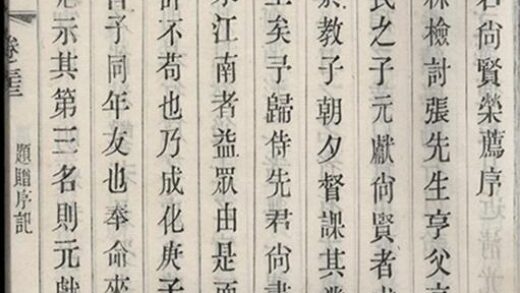 君尚賢榮薦序
林檢討張先生亨父
民之子元獻尚賢者
於教子朝夕督課其
矣予歸侍先君尚書
江南者益眾由是而
許不苟也乃成化庚子
子同年友也奉命來
示其第三名則元獻
題贈序記